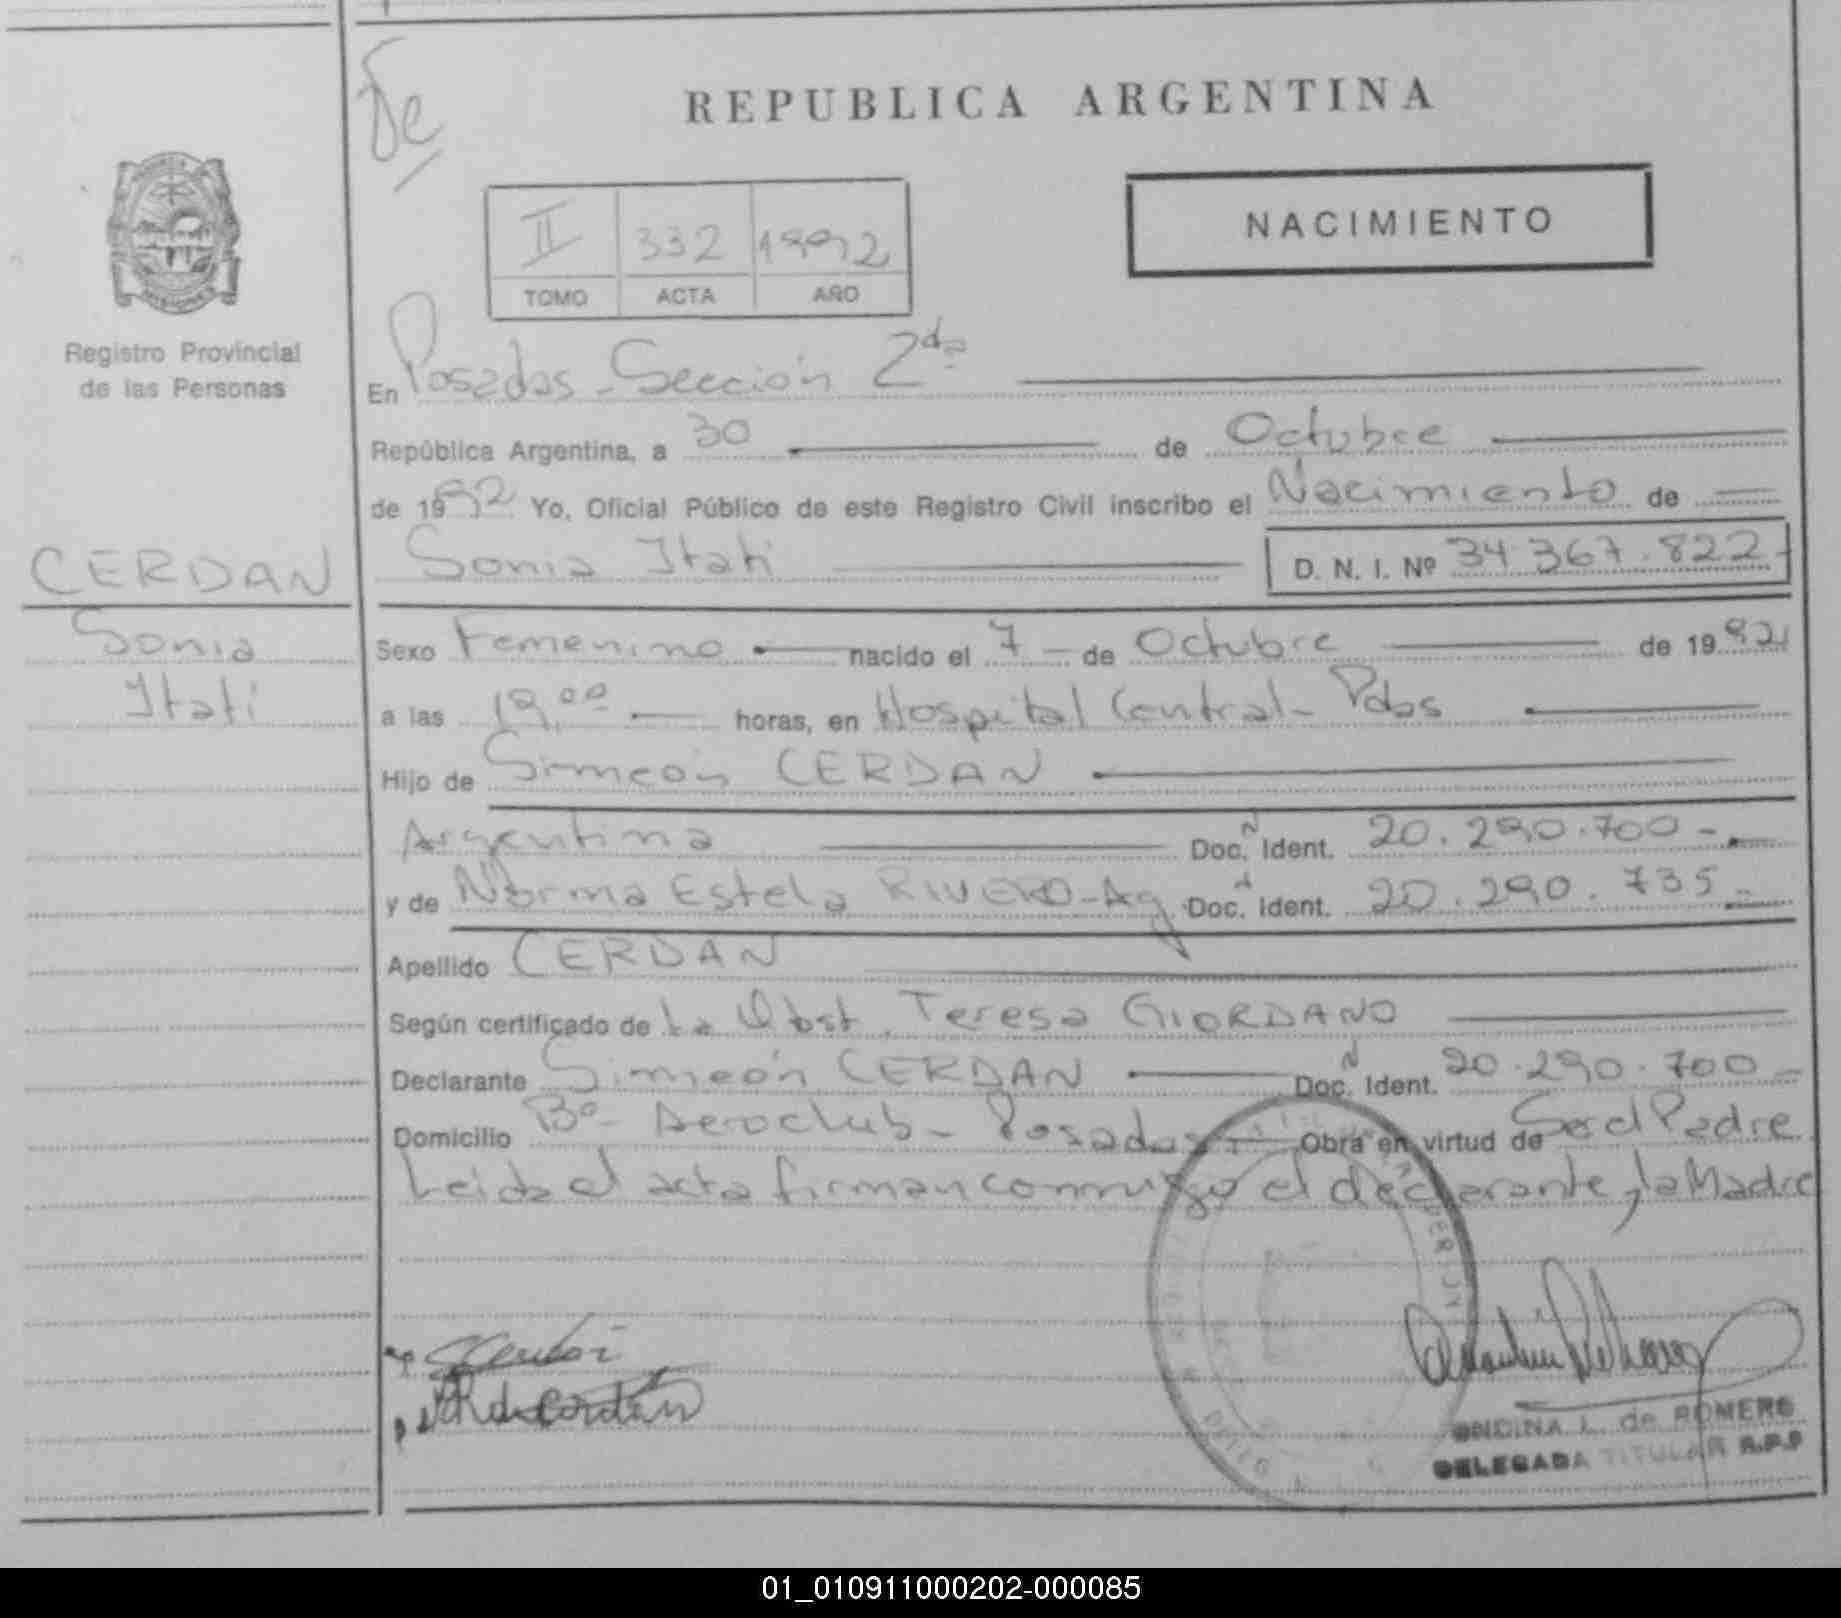 De
REPUBLICA ARGENTINA
II 332 1992
TOMO ACTA AÑO
NACIMIENTO
Registro Provincial
de las Personas
En Posadas - Sección 2da
República Argentina, a 30 de Octubre
de 1992 Yo, Oficial Público de este Registro Civil inscribo el Nacimiento de
CERDAN
Sonia Itati D. N. I. Nº 34.367.822-
Sonia
Itatí
Sexo Femenino nacido el 7 - de Octubre de 1992
a las 19,00 horas, en Hospital Central - Pdas
Hijo de Simeón CERDAN
Argentina Doc. Ident. 20.290.700-
y de Norma Estela RIVERO - Ag. Doc. Ident. 20.290.735-
Apellido CERDAN
Según certificado de La Obst. Teresa GIORDANO
Declarante Simeón CERDAN Doc. Ident. 20.290.700-
Domicilio Bº - Aeroclub - Posadas Obra en virtud de Ser el Padre
Leida el acta firman conmigo el declarante y la Madre
ONDINA L. de ROMERO
DELEGADA TITULAR R.P.P
01_010911000202-000085